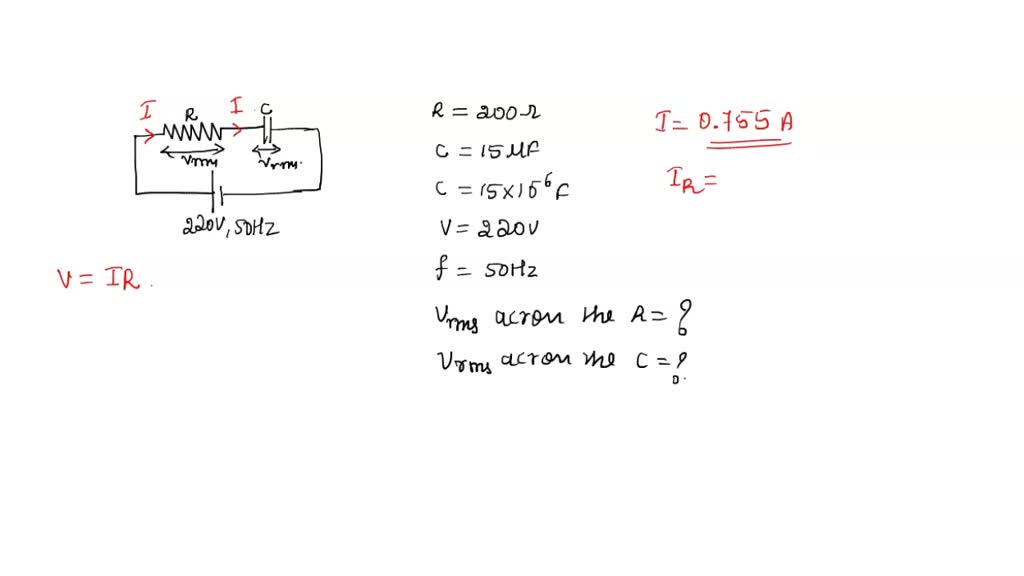 I I
R C
Vrms Vrms.
220V, 50Hz
V = IR.
R = 200Ω
C = 15 μF
C = 15 × 10⁻⁶ F
V = 220V
f = 50Hz
Vrms across the R = ?
Vrms across the C = ?
I = 0.755 A
I_R =